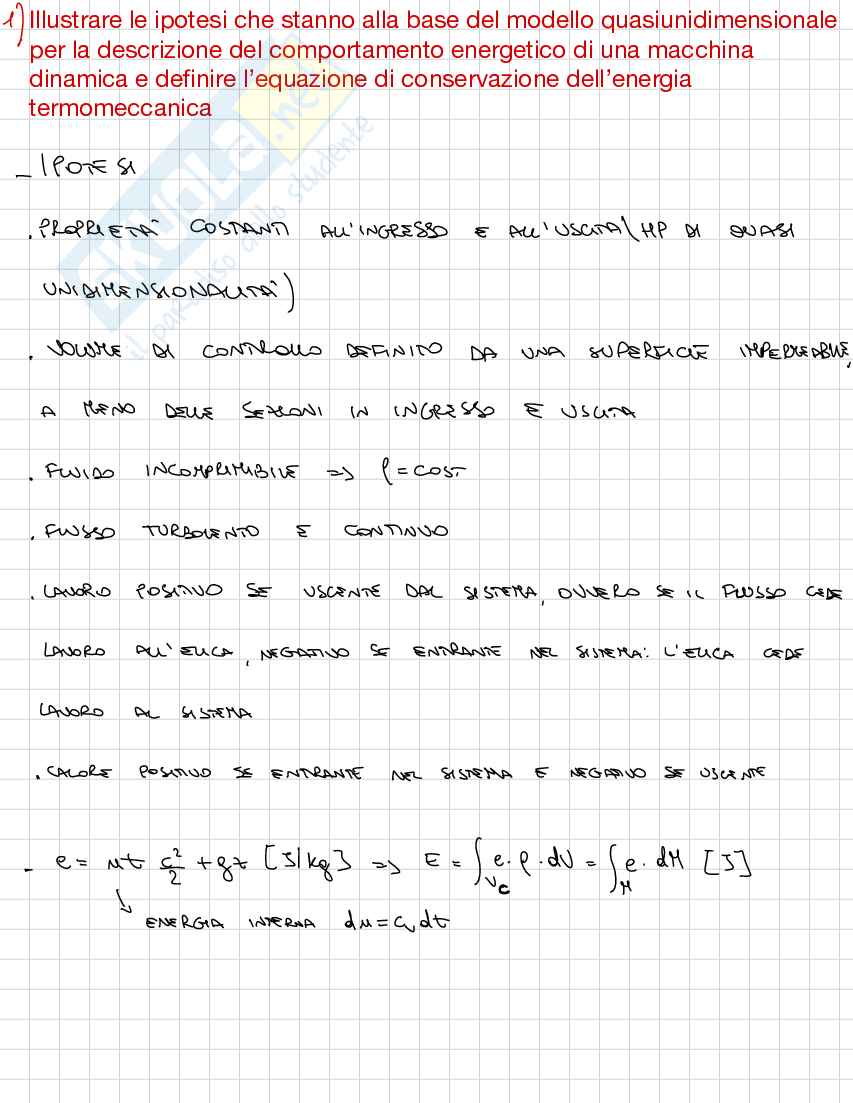 1) Illustrare le ipotesi che stanno alla base del modello quasiunidimensionale
per la descrizione del comportamento energetico di una macchina
dinamica e definire l'equazione di conservazione dell'energia
termomeccanica
SKUOLA.net
il paradiso dello studente
- IPOTESI
. PROPRIETÀ COSTANTI ALL'INGRESSO E ALL'USCITA (HP DI QUASI
UNIDIMENSIONALITÀ)
. VOLUME DI CONTROLLO DEFINITO DA UNA SUPERFICIE IMPERMEABILE,
A MENO DELLE SEZIONI IN INGRESSO E USCITA
. FLUIDO INCOMPRIMIBILE => ρ = COST
. FLUSSO TURBOLENTO E CONTINUO
. LAVORO POSITIVO SE USCENTE DAL SISTEMA, OVVERO SE IL FLUSSO CEDE
LAVORO ALL'ELICA, NEGATIVO SE ENTRANTE NEL SISTEMA: L'ELICA CEDE
LAVORO AL SISTEMA
. CALORE POSITIVO SE ENTRANTE NEL SISTEMA E NEGATIVO SE USCENTE
- e = u + c²/2 + gz [J/kg] => E = ∫Vc e · ρ · dV = ∫M e · dM [J]
↳ ENERGIA INTERNA du = cv dt